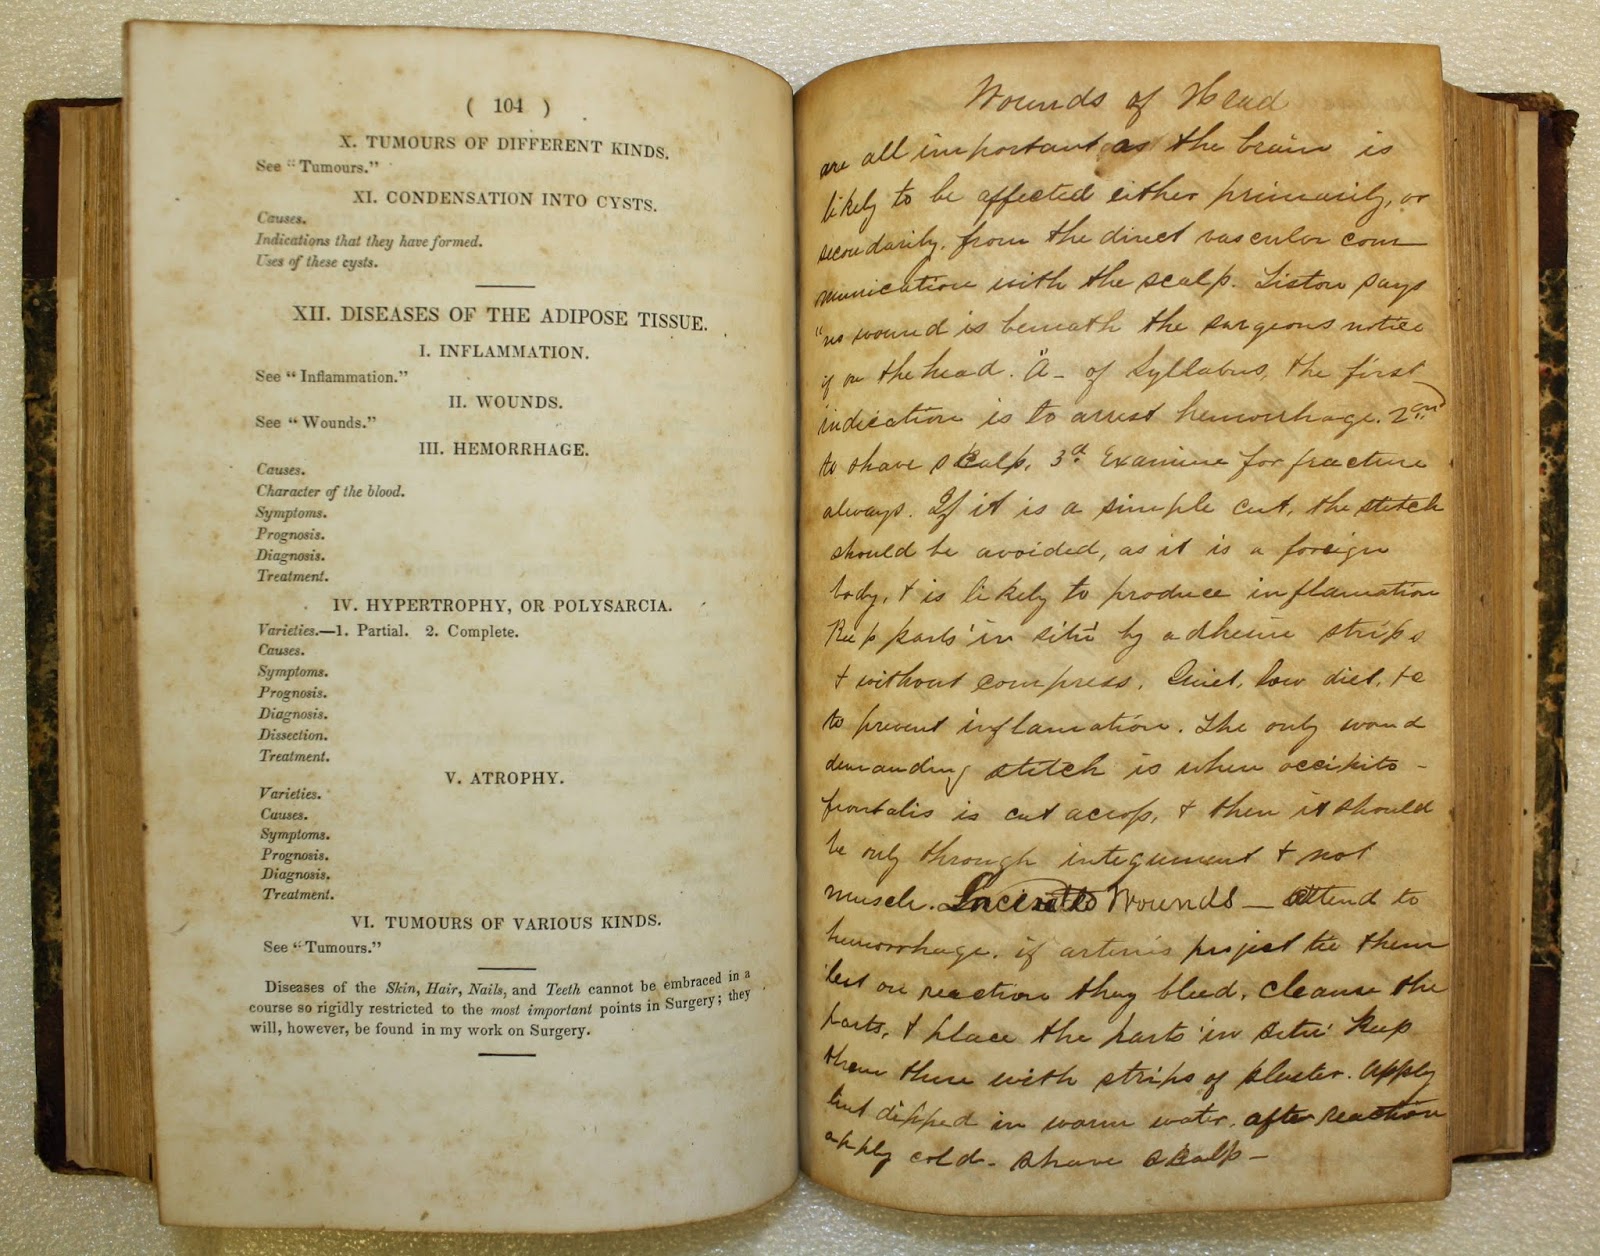 ( 104 )
X. TUMOURS OF DIFFERENT KINDS.
See "Tumours."
XI. CONDENSATION INTO CYSTS.
Causes.
Indications that they have formed.
Uses of these cysts.
XII. DISEASES OF THE ADIPOSE TISSUE.
I. INFLAMMATION.
See "Inflammation."
II. WOUNDS.
See "Wounds."
III. HEMORRHAGE.
Causes.
Character of the blood.
Symptoms.
Prognosis.
Diagnosis.
Treatment.
IV. HYPERTROPHY, OR POLYSARCIA.
Varieties.—1. Partial. 2. Complete.
Causes.
Symptoms.
Prognosis.
Diagnosis.
Dissection.
Treatment.
V. ATROPHY.
Varieties.
Causes.
Symptoms.
Prognosis.
Diagnosis.
Treatment.
VI. TUMOURS OF VARIOUS KINDS.
See "Tumours."
Diseases of the Skin, Hair, Nails, and Teeth cannot be embraced in a
course so rigidly restricted to the most important points in Surgery; they
will, however, be found in my work on Surgery.
Wounds of Head
are all important as the brain is
likely to be affected either primarily, or
secondarily, from the direct vascular com
munication with the scalp. Liston says
"no wound is beneath the surgeons notice
if on the head." A – of Syllabus, the first
indication is to arrest hemorrhage. 2nd
to shave scalp, 3d. Examine for fracture
always. If it is a simple cut, the stitch
should be avoided, as it is a foreign
body, & is likely to produce inflamation
Keep parts 'in situ' by adhesive strips
& without compress. Quiet, low diet, &c
to prevent inflamation. The only wound
demanding stitch is when occipito-
frontalis is cut across, & then it should
be only through integument & not
muscle. Wounds – attend to
hemorrhage, if arteries project tie them
lest on reaction they bleed, cleanse the
parts, & place the parts 'in situ' Keep
them there with strips of plaster. Apply
lint dipped in warm water, after reaction
apply cold – shave scalp –